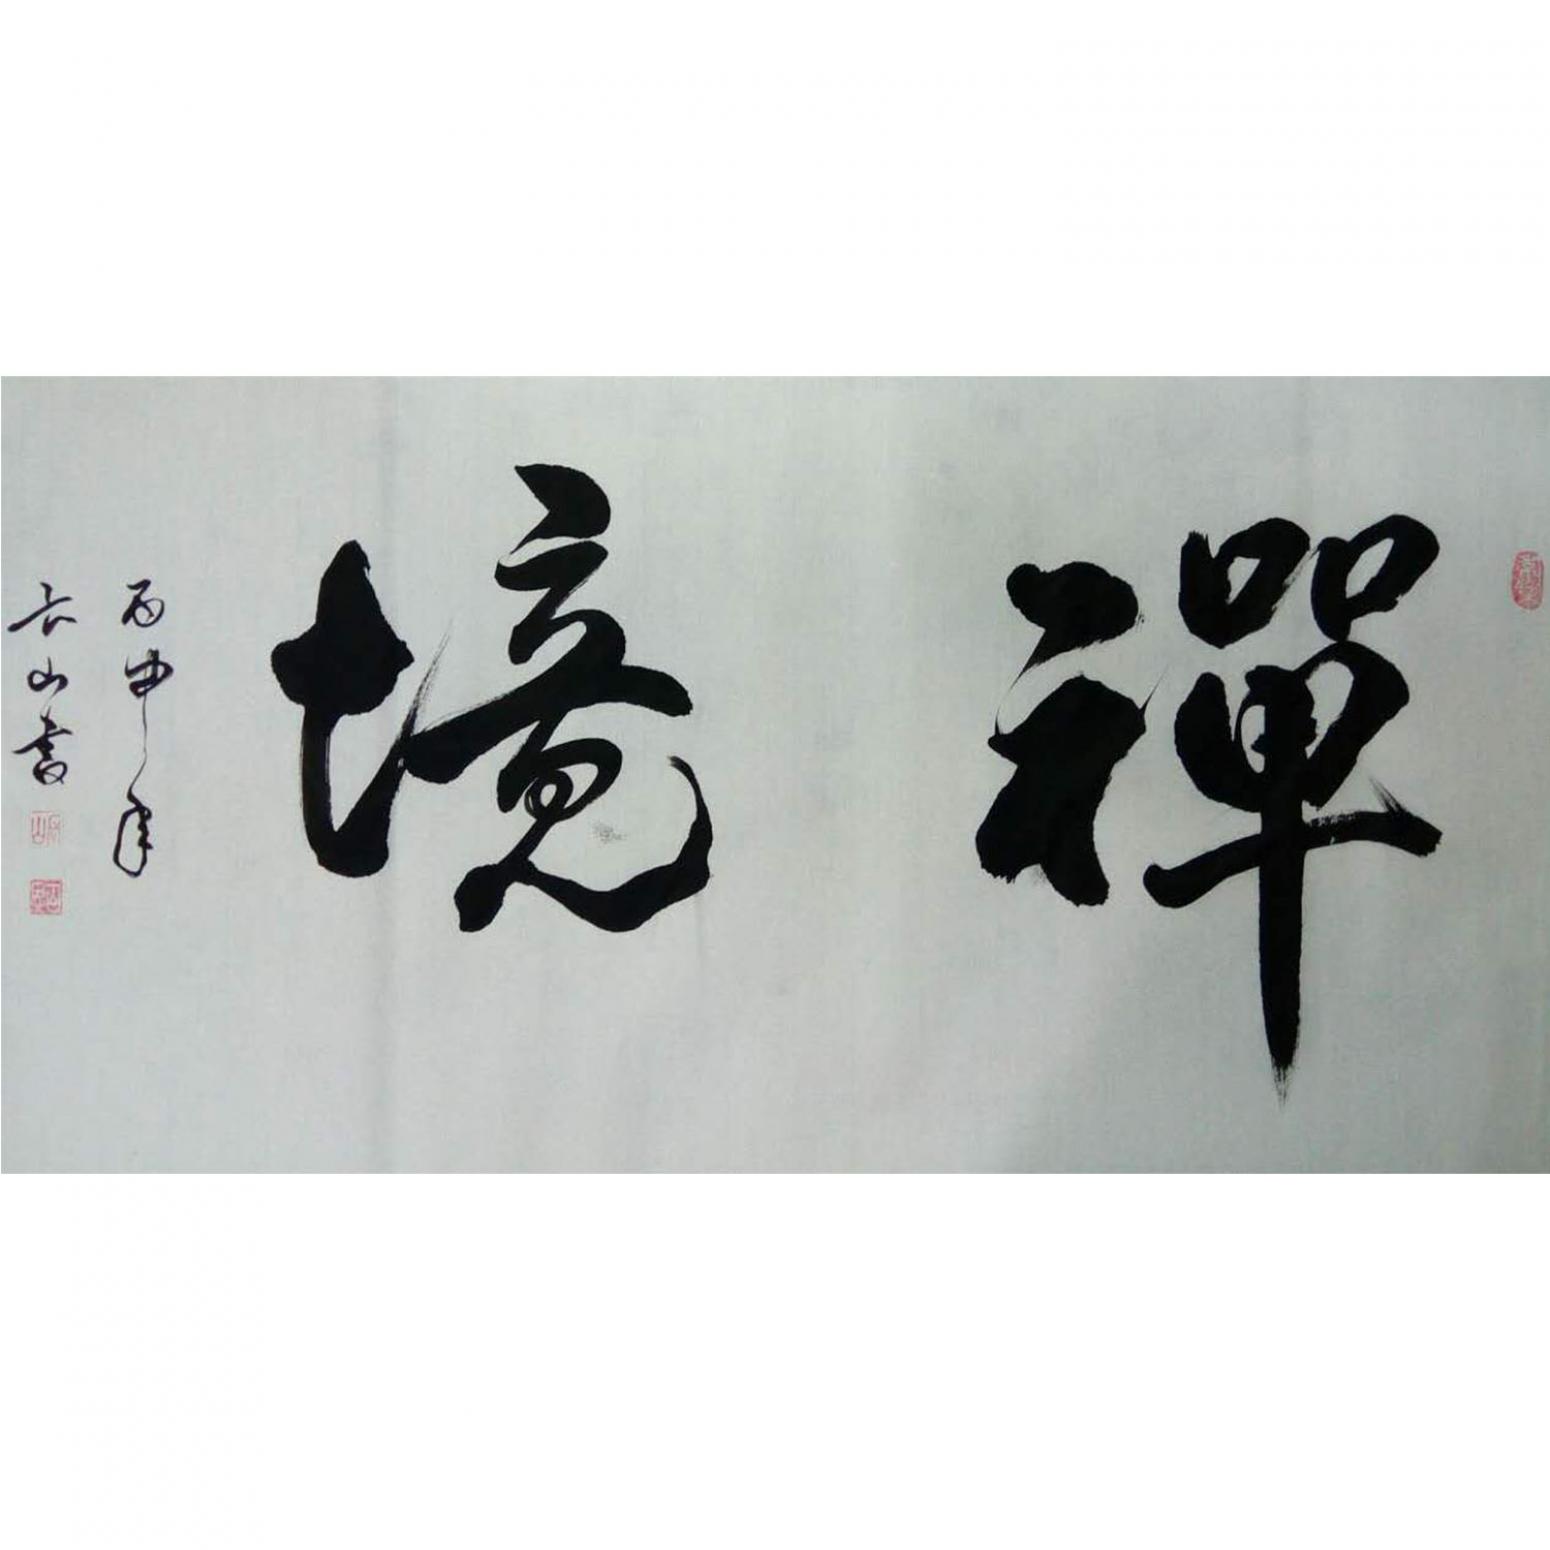 禪境
丙申年
長山書